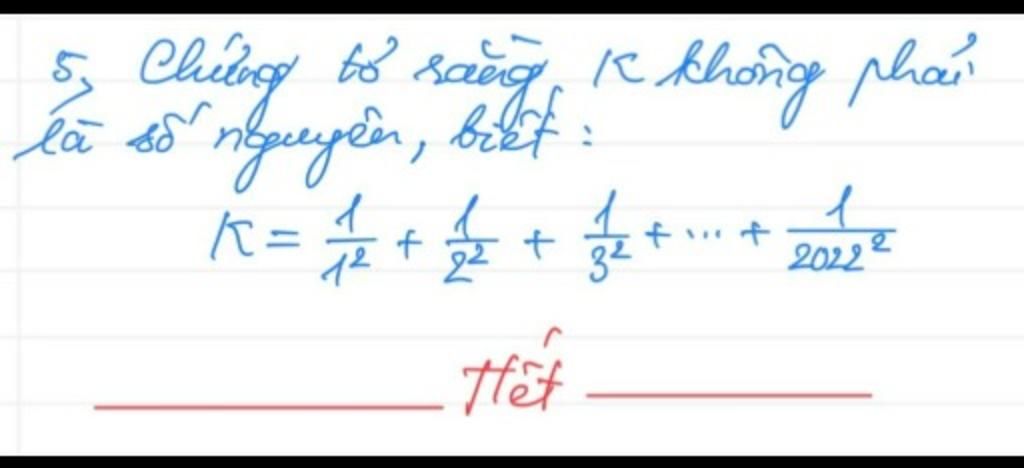 5, Chứng tỏ rằng K không phải
là số nguyên, biết :
K = 1/1² + 1/2² + 1/3² + ... + 1/2022²
Hết